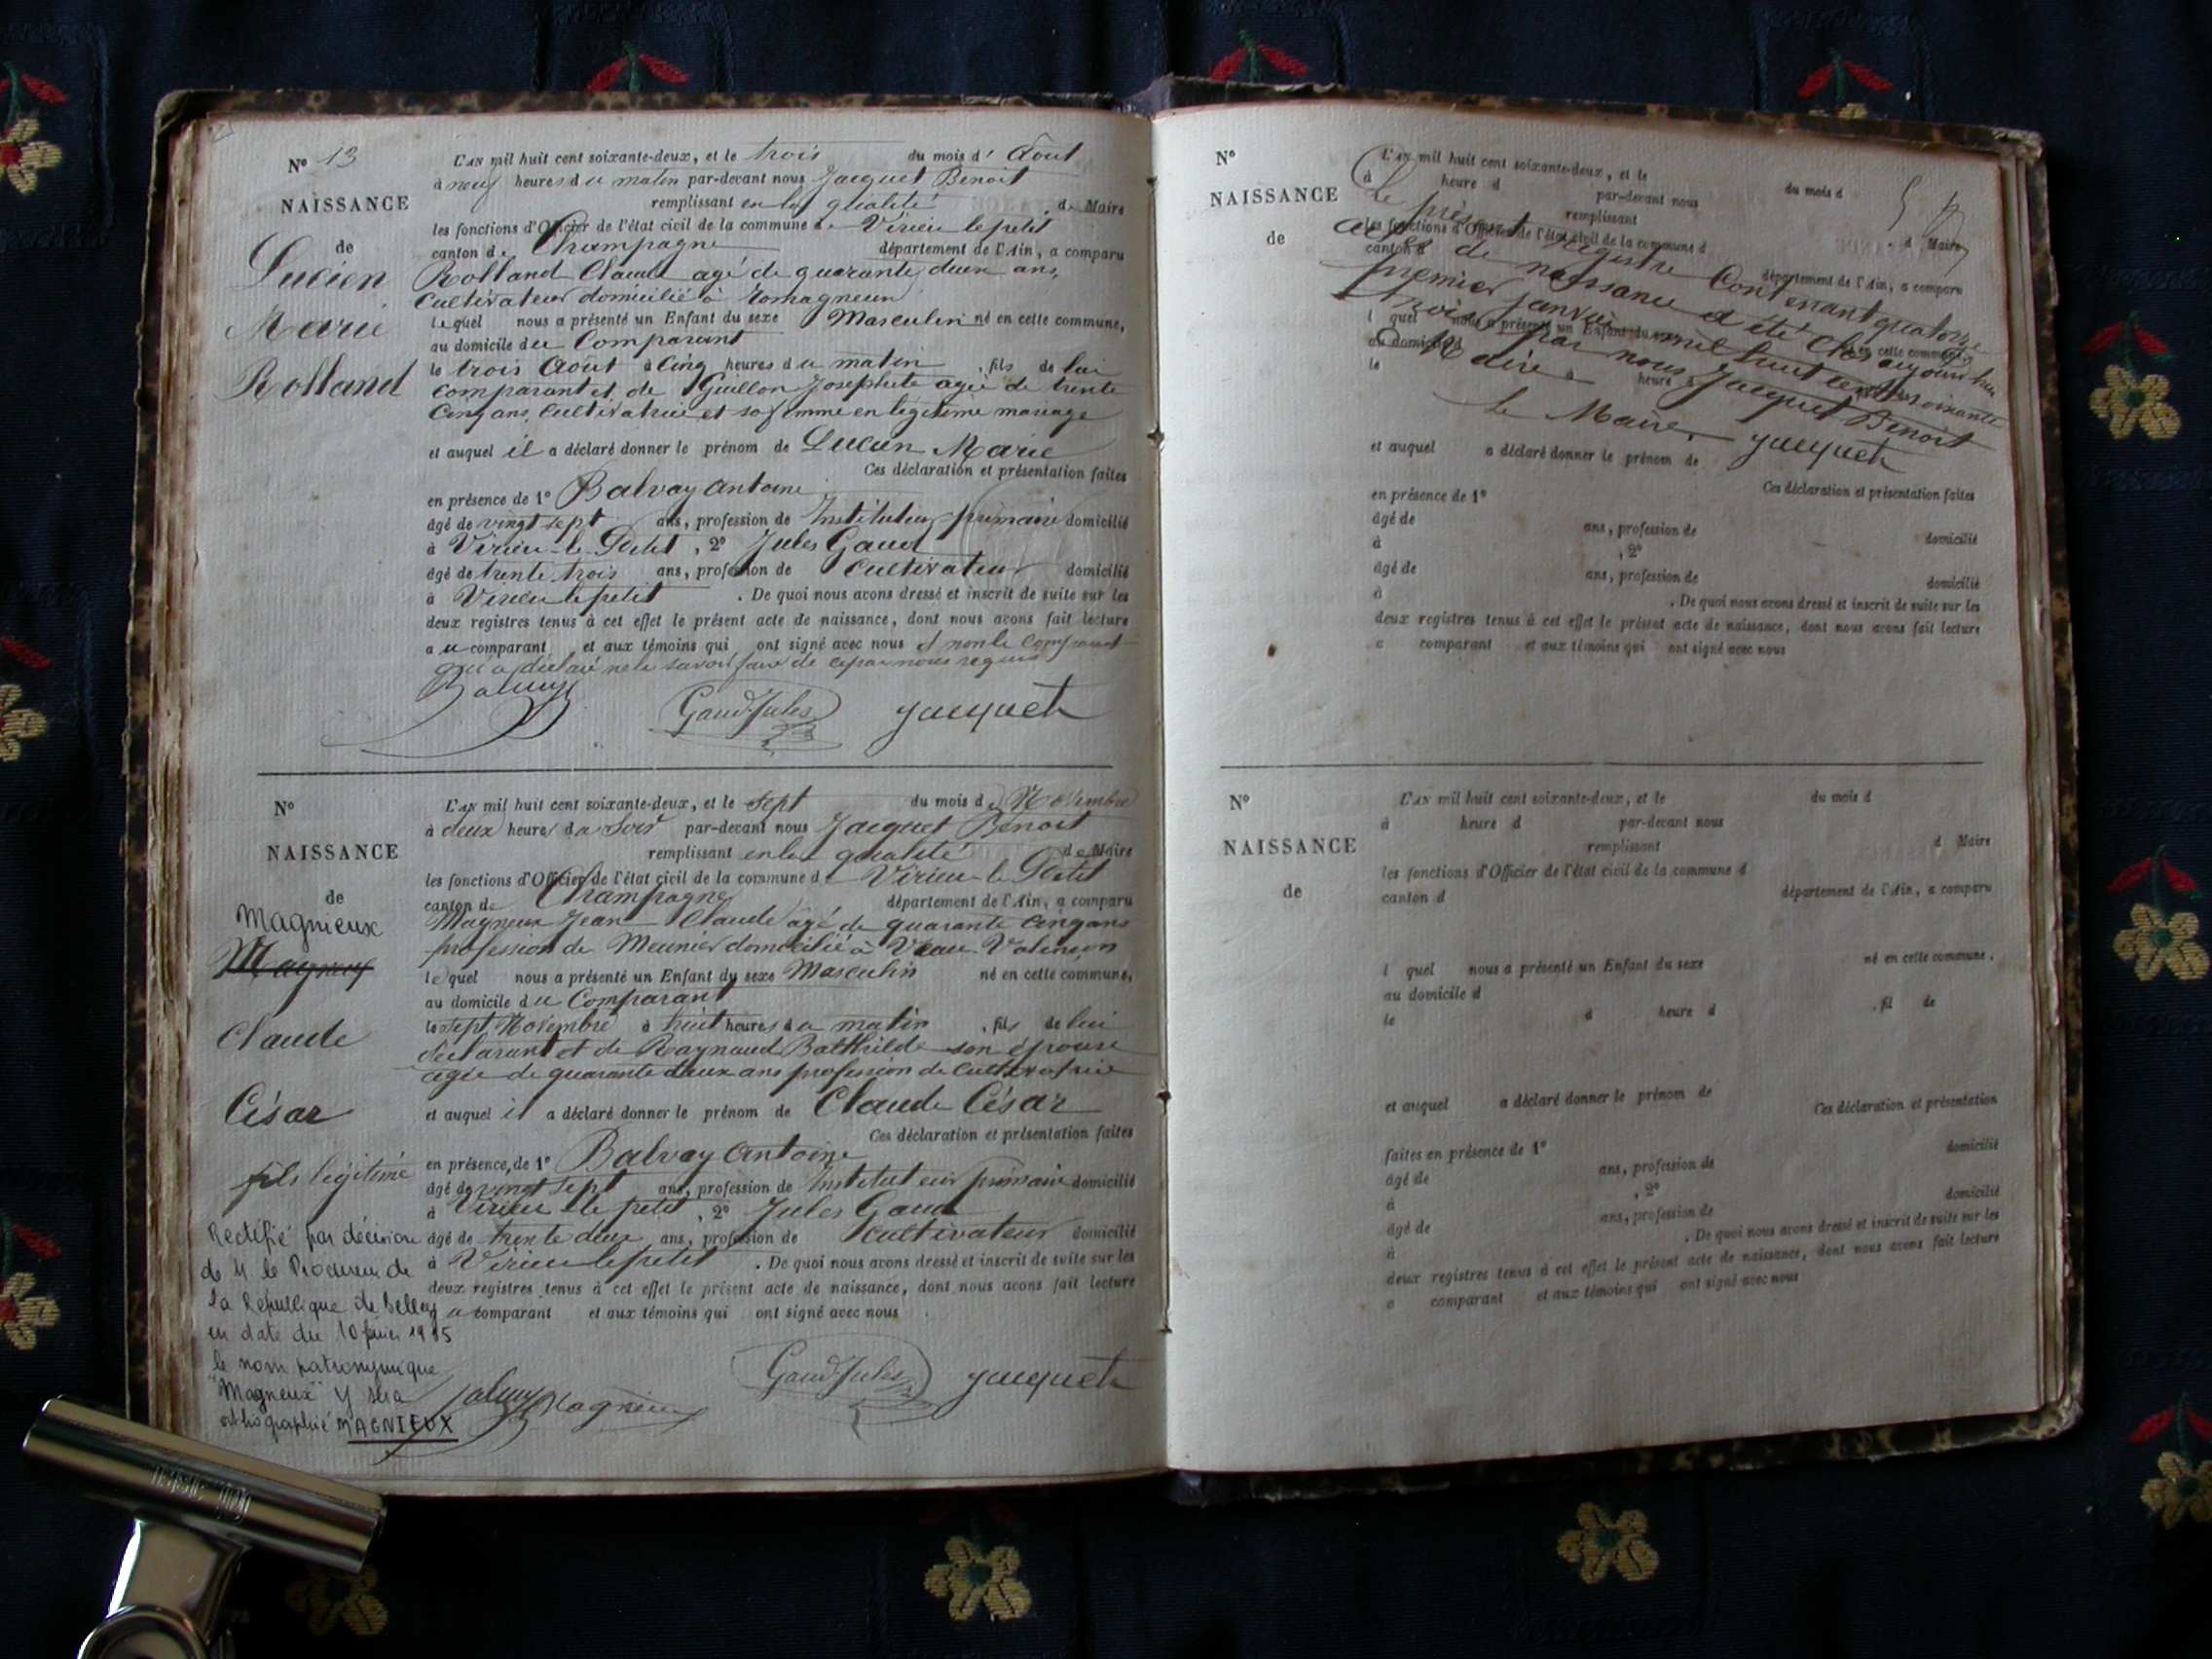 N° 13
NAISSANCE
de
Lucien
Marie
Rolland
L'AN mil huit cent soixante-deux, et le trois du mois d' Aout
à neuf heures du matin par-devant nous Jacquet Benoit
remplissant en la qualité de Maire
les fonctions d'Officier de l'état civil de la commune de Virieu le petit
canton de Champagne département de l'Ain, a comparu
Rolland Claude agé de quarante deux ans,
Cultivateur domicilié à Romagneux
lequel nous a présenté un Enfant du sexe Masculin né en cette commune,
au domicile du Comparant
le trois Aout à Cinq heures du matin, fils de lui
comparant et de Guillon Josephte agée de trente
Cinq ans, Cultivatrice et sa femme en légitime mariage
et auquel il a déclaré donner le prénom de Lucien Marie
Ces déclaration et présentation faites
en présence de 1° Balvay Antoine
âgé de vingt sept ans, profession de Instituteur primaire domicilié
à Virieu-le-Petit, 2° Jules Gaud
âgé de trente trois ans, profession de Cultivateur domicilié
à Virieu le petit. De quoi nous avons dressé et inscrit de suite sur les
deux registres tenus à cet effet le présent acte de naissance, dont nous avons fait lecture
au comparant et aux témoins qui ont signé avec nous et non le Comparant
qui a déclaré ne le savoir faire de ce par nous requis
Balvay
Gaud Jules
Jacquet
N°
NAISSANCE
de
Magnieux
Claude
César
fils légitime
Rectifié par décision
de M. le Procureur de
la République de Belley
en date du 10
le nom patronymique
"Magneux" y sera
orthographié MAGNIEUX
L'AN mil huit cent soixante-deux, et le sept du mois de Novembre
à deux heures du soir par-devant nous Jacquet Benoit
remplissant en la qualité de Maire
les fonctions d'Officier de l'état civil de la commune de Virieu-le-Petit
canton de Champagne département de l'Ain, a comparu
Magneux Jean Claude agé de quarante cinq ans
profession de Meunier domicilié à
lequel nous a présenté un Enfant du sexe Masculin né en cette commune,
au domicile du Comparant
le sept Novembre à huit heures du matin, fils de lui
déclarant et de Raynaud Bathilde son épouse
agée de quarante deux ans profession de Cultivatrice
et auquel il a déclaré donner le prénom de Claude César
Ces déclaration et présentation faites
en présence, de 1° Balvay Antoine
âgé de vingt sept ans, profession de Instituteur primaire domicilié
à Virieu le petit, 2° Jules Gaud
âgé de trente deux ans, profession de Cultivateur domicilié
à Virieu le petit. De quoi nous avons dressé et inscrit de suite sur les
deux registres tenus à cet effet le présent acte de naissance, dont nous avons fait lecture
au comparant et aux témoins qui ont signé avec nous
Balvay Magnieux
Gaud Jules
Jacquet
N°
NAISSANCE
de
L'AN mil huit cent soixante-deux, et le du mois d
à heure d par-devant nous
remplissant d Maire
les fonctions d'Officier de l'état civil de la commune d
canton d département de l'Ain, a comparu
l quel nous a présenté un Enfant du sexe né en cette commune,
au domicile d
le à heure d
Le présent registre Contenant quatorze
actes de naissance a été Clos aujourd'hui
premier janvier mil huit cent soixante
trois par nous Jacquet Benoit
Maire
Le Maire, Jacquet
et auquel a déclaré donner le prénom de
Ces déclaration et présentation faites
en présence de 1°
âgé de ans, profession de domicilié
à , 2°
âgé de ans, profession de domicilié
à . De quoi nous avons dressé et inscrit de suite sur les
deux registres tenus à cet effet le présent acte de naissance, dont nous avons fait lecture
a comparant et aux témoins qui ont signé avec nous
N°
NAISSANCE
de
L'AN mil huit cent soixante-deux, et le du mois d
à heure d par-devant nous
remplissant d Maire
les fonctions d'Officier de l'état civil de la commune d
canton d département de l'Ain, a comparu
l quel nous a présenté un Enfant du sexe né en cette commune,
au domicile d
le à heure d , fil de
et auquel a déclaré donner le prénom de
Ces déclaration et présentation
faites en présence de 1° domicilié
âgé de ans, profession de
à , 2° domicilié
âgé de ans, profession de
à . De quoi nous avons dressé et inscrit de suite sur les
deux registres tenus à cet effet le présent acte de naissance, dont nous avons fait lecture
a comparant et aux témoins qui ont signé avec nous